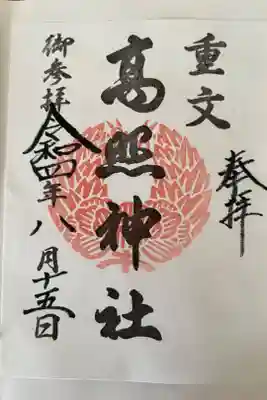 奉拝
重文
高照神社
御参拝
令和四年八月十五日